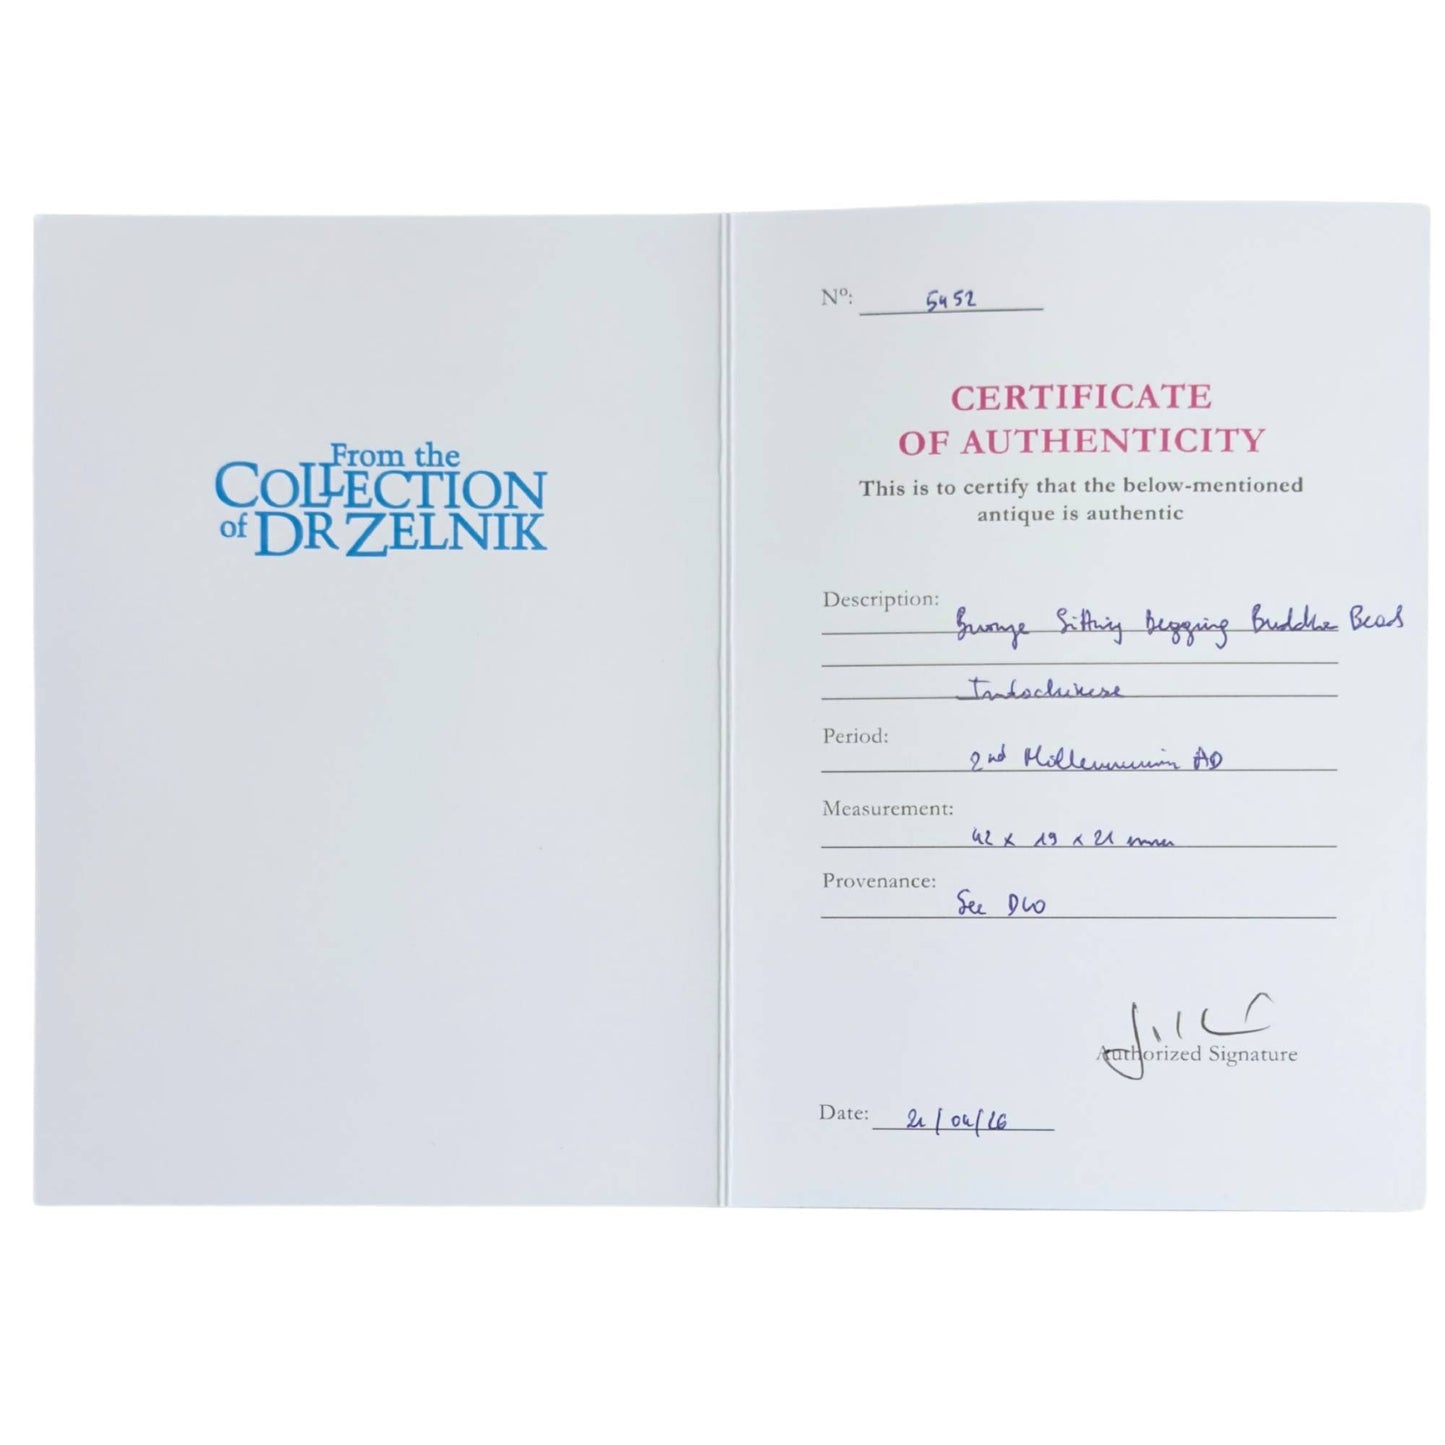 From the
COLLECTION
of DR ZELNIK
Nº: 5452
CERTIFICATE
OF AUTHENTICITY
This is to certify that the below-mentioned
antique is authentic
Description:
Bronze Sitting Begging Buddha Bead
Indochinese
Period:
2nd Millennium AD
Measurement:
42 x 19 x 21 mm
Provenance:
See
Authorized Signature
Date: